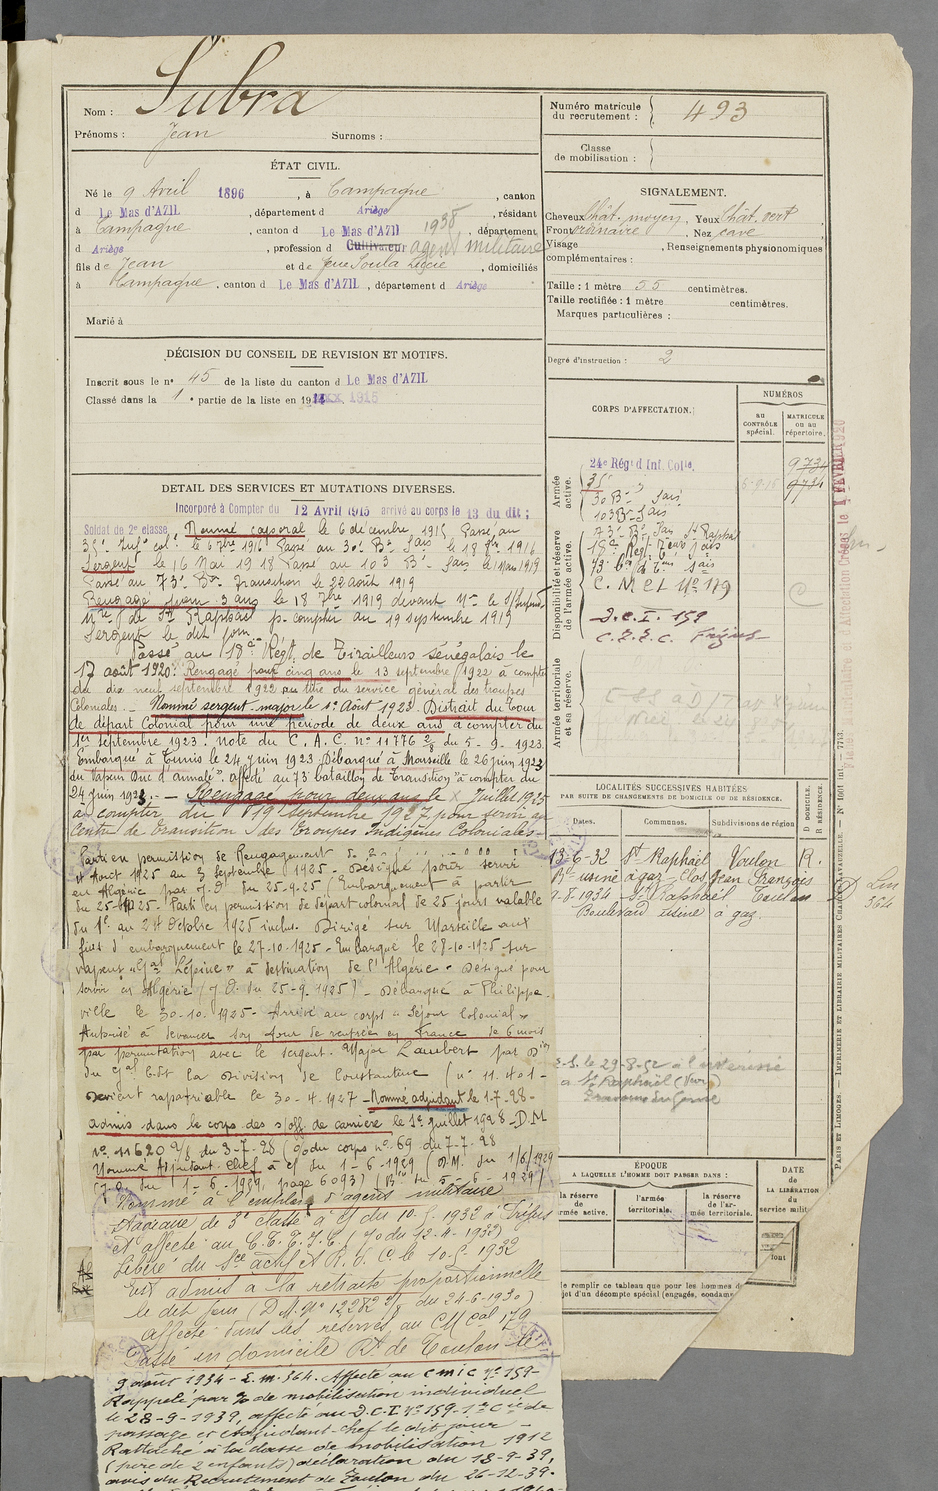 Nom : Subra
Prénoms : Jean Surnoms :
ÉTAT CIVIL.
Né le 9 Avril 1896, à Campagne, canton
d Le Mas d'AZIL, département d Ariège, résidant
à Campagne, canton d Le Mas d'AZIL 1938, département
d Ariège, profession d Cultivateur agent militaire
fils de Jean et de feue Soula, domiciliés
à Campagne, canton d Le Mas d'AZIL, département d Ariège
Marié à
DÉCISION DU CONSEIL DE REVISION ET MOTIFS.
Inscrit sous le n° 45 de la liste du canton d Le Mas d'AZIL
Classé dans la 1e partie de la liste en 1915
DÉTAIL DES SERVICES ET MUTATIONS DIVERSES.
Incorporé à Compter du 12 Avril 1915 arrivé au corps le 13 du dit ;
Soldat de 2e classe, Nommé caporal le 6 décembre 1915 Passé au
35e Inf. col. le 6 7bre 1916 Passé au 30e Bon Sais le 18 1916
Sergent le 16 Mai 1918 Passé au 103 Bon Sais le 1919
Passé au 73e Bon Transition le 22 août 1919
Rengagé pour 3 ans le 18 7bre 1919 devant Mr le S/Intendt
Mre de St Raphaël p. compter du 19 septembre 1919
Sergent le dit jour
Passé au 18e Régt de Tirailleurs sénégalais le
17 août 1920. Rengagé pour cinq ans le 13 septembre 1922 à compter
du dix neuf septembre 1922 au titre du service général des troupes
Coloniales. — Nommé sergent-major le 1er Août 1923. Distrait du Tour
de départ Colonial pour une période de deux ans à compter du
1er septembre 1923. Note du C. A. C. n° 11776 2/8 du 5-9-1923.
Embarqué à Tunis le 24 juin 1923 Débarqué à Marseille le 26 juin 1923
du Vapeur Duc d'aumale". affecté au 73e bataillon de Transition à compter du
24 juin 1923. — Rengagé pour deux ans le Juillet 1925
à compter du 19 septembre 1927 pour servir au
Centre de Transition des Troupes Indigènes Coloniales-
Parti en permission de Rengagement de
Août 1925 au 3 septembre 1925 - Désigné pour servir
en Algérie par J.O. du 25-9-25 (Embarquement à partir
du 25-1925. Parti en permission de départ colonial de 25 jours valable
du 1er au 24 Octobre 1925 inclus. Dirigé sur Marseille aux
fins d'embarquement le 27-10-1925 - Embarqué le 28-10-1925 sur
vapeur «Gal Lépine» à destination de l'Algérie - Désigné pour
servir en Algérie (J.O. du 25-9-1925) - Débarqué à Philippe-
ville le 30-10-1925 - Arrivé au corps «Séjour colonial»
Autorisé à devancer son tour de rentrée en France de 6 mois
par permutation avec le sergent-Major Lambert par Don
du Gal Cdt la Division de Constantine (n° 11.401-
Devient rapatriable le 30-4-1927 - Nommé adjudant le 1-7-28-
admis dans le corps des s/off. de carrière le 1er juillet 1928 - D.M
n° 11620 2/8 du 3-7-28 (O. du corps n° 69 du 7-7-28
Nommé Adjudant-chef à c/ du 1-6-1929 (D.M. du 1/6/1929
(J.O. du 1-6-1929, page 6093) (Bin du 5-6-1929)
Nommé à l'emploi d'agent militaire
stagiaire de 3e classe à c/ du 10-5-1932 à Fréjus
et affecté au C.T.T.I.C. (JO du 12-4-1932)
Libéré du Sce actif et R.D.C. le 10-5-1932
Est admis à la retraite proportionnelle
le dit jour (D.M. n° 12282 2/8 du 24-6-1930)
affecté dans les réserves au CM Cal 179
Passé en domicile Rt de Toulon le
9 août 1934 - E.M. 364. Affecté au C M I C n° 159-
Rappelé par % de mobilisation individuel
le 28-9-1939, affecté au D.C.I. n° 159-1re Cie de
passage et Adjudant-chef le dit jour -
Rattaché à la classe de mobilisation 1912
(père de 2 enfants) déclaration du 18-9-39,
avis du Recrutement de Toulon du 26-12-39-
Numéro matricule du recrutement : 493
Classe de mobilisation :
SIGNALEMENT.
Cheveux Chât. moyen, Yeux Chât. vert
Front ordinaire, Nez cave
Visage , Renseignements physionomiques
complémentaires :
Taille : 1 mètre 55 centimètres.
Taille rectifiée : 1 mètre centimètres.
Marques particulières :
Degré d'instruction : 2
CORPS D'AFFECTATION.
NUMÉROS
au CONTRÔLE spécial.
MATRICULE ou au répertoire.
Armée active.
24e Régt d'Inf. Colle 9734
35e 6-9-16 9734
30 Bon Sais
103 Bon Sais
Disponibilité et réserve de l'armée active.
73e Bon Sais St Raphaël
18e Régt Teurs Sais
73 Bon d Teurs Sais
C. M CL N° 179
D.C.I. 159
C.T.T.C. Fréjus
Armée territoriale et sa réserve.
LOCALITÉS SUCCESSIVES HABITÉES
PAR SUITE DE CHANGEMENTS DE DOMICILE OU DE RÉSIDENCE.
Dates. Communes. Subdivisions de région D DOMICILE. R RÉSIDENCE.
13-6-32 St Raphaël Toulon R.
Bd usine à gaz - Clos Jean François
9-8-1934 St Raphaël Toulon D Em 364
Boulevard usine à gaz.
le 29-8-52 à l'
à St Raphaël (Var)
ÉPOQUE
A LAQUELLE L'HOMME DOIT PASSER DANS :
la réserve de l'armée active.
l'armée territoriale.
la réserve de l'armée territoriale.
DATE de LA LIBÉRATION du service milit
le remplir ce tableau que pour les hommes d
jet d'un décompte spécial (engagés, condam
PARIS ET LIMOGES. — IMPRIMERIE ET LIBRAIRIE MILITAIRES CHARLES-LAVAUZELLE. — N° 1601 int. — 7713.